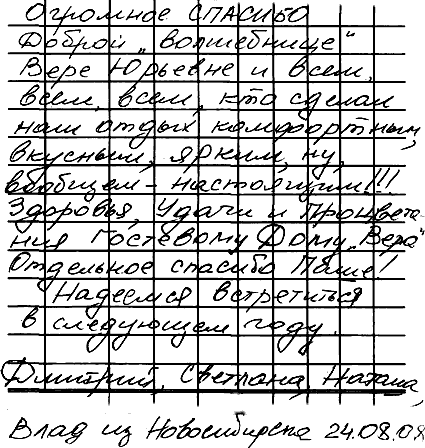 Огромное СПАСИБО
Доброй „волшебнице“
Вере Юрьевне и всем,
всем, всем, кто сделал
наш отдых комфортным,
вкусным, ярким, ну,
вообщем – настоящим!!!
Здоровья, Удачи и Процвета-
ния Гостевому Дому „Вера“
Отдельное спасибо Паше!
Надеемся встретиться
в следующем году.
Дмитрий, Светлана, Наташа,
Влад из Новосибирска 24.08.08